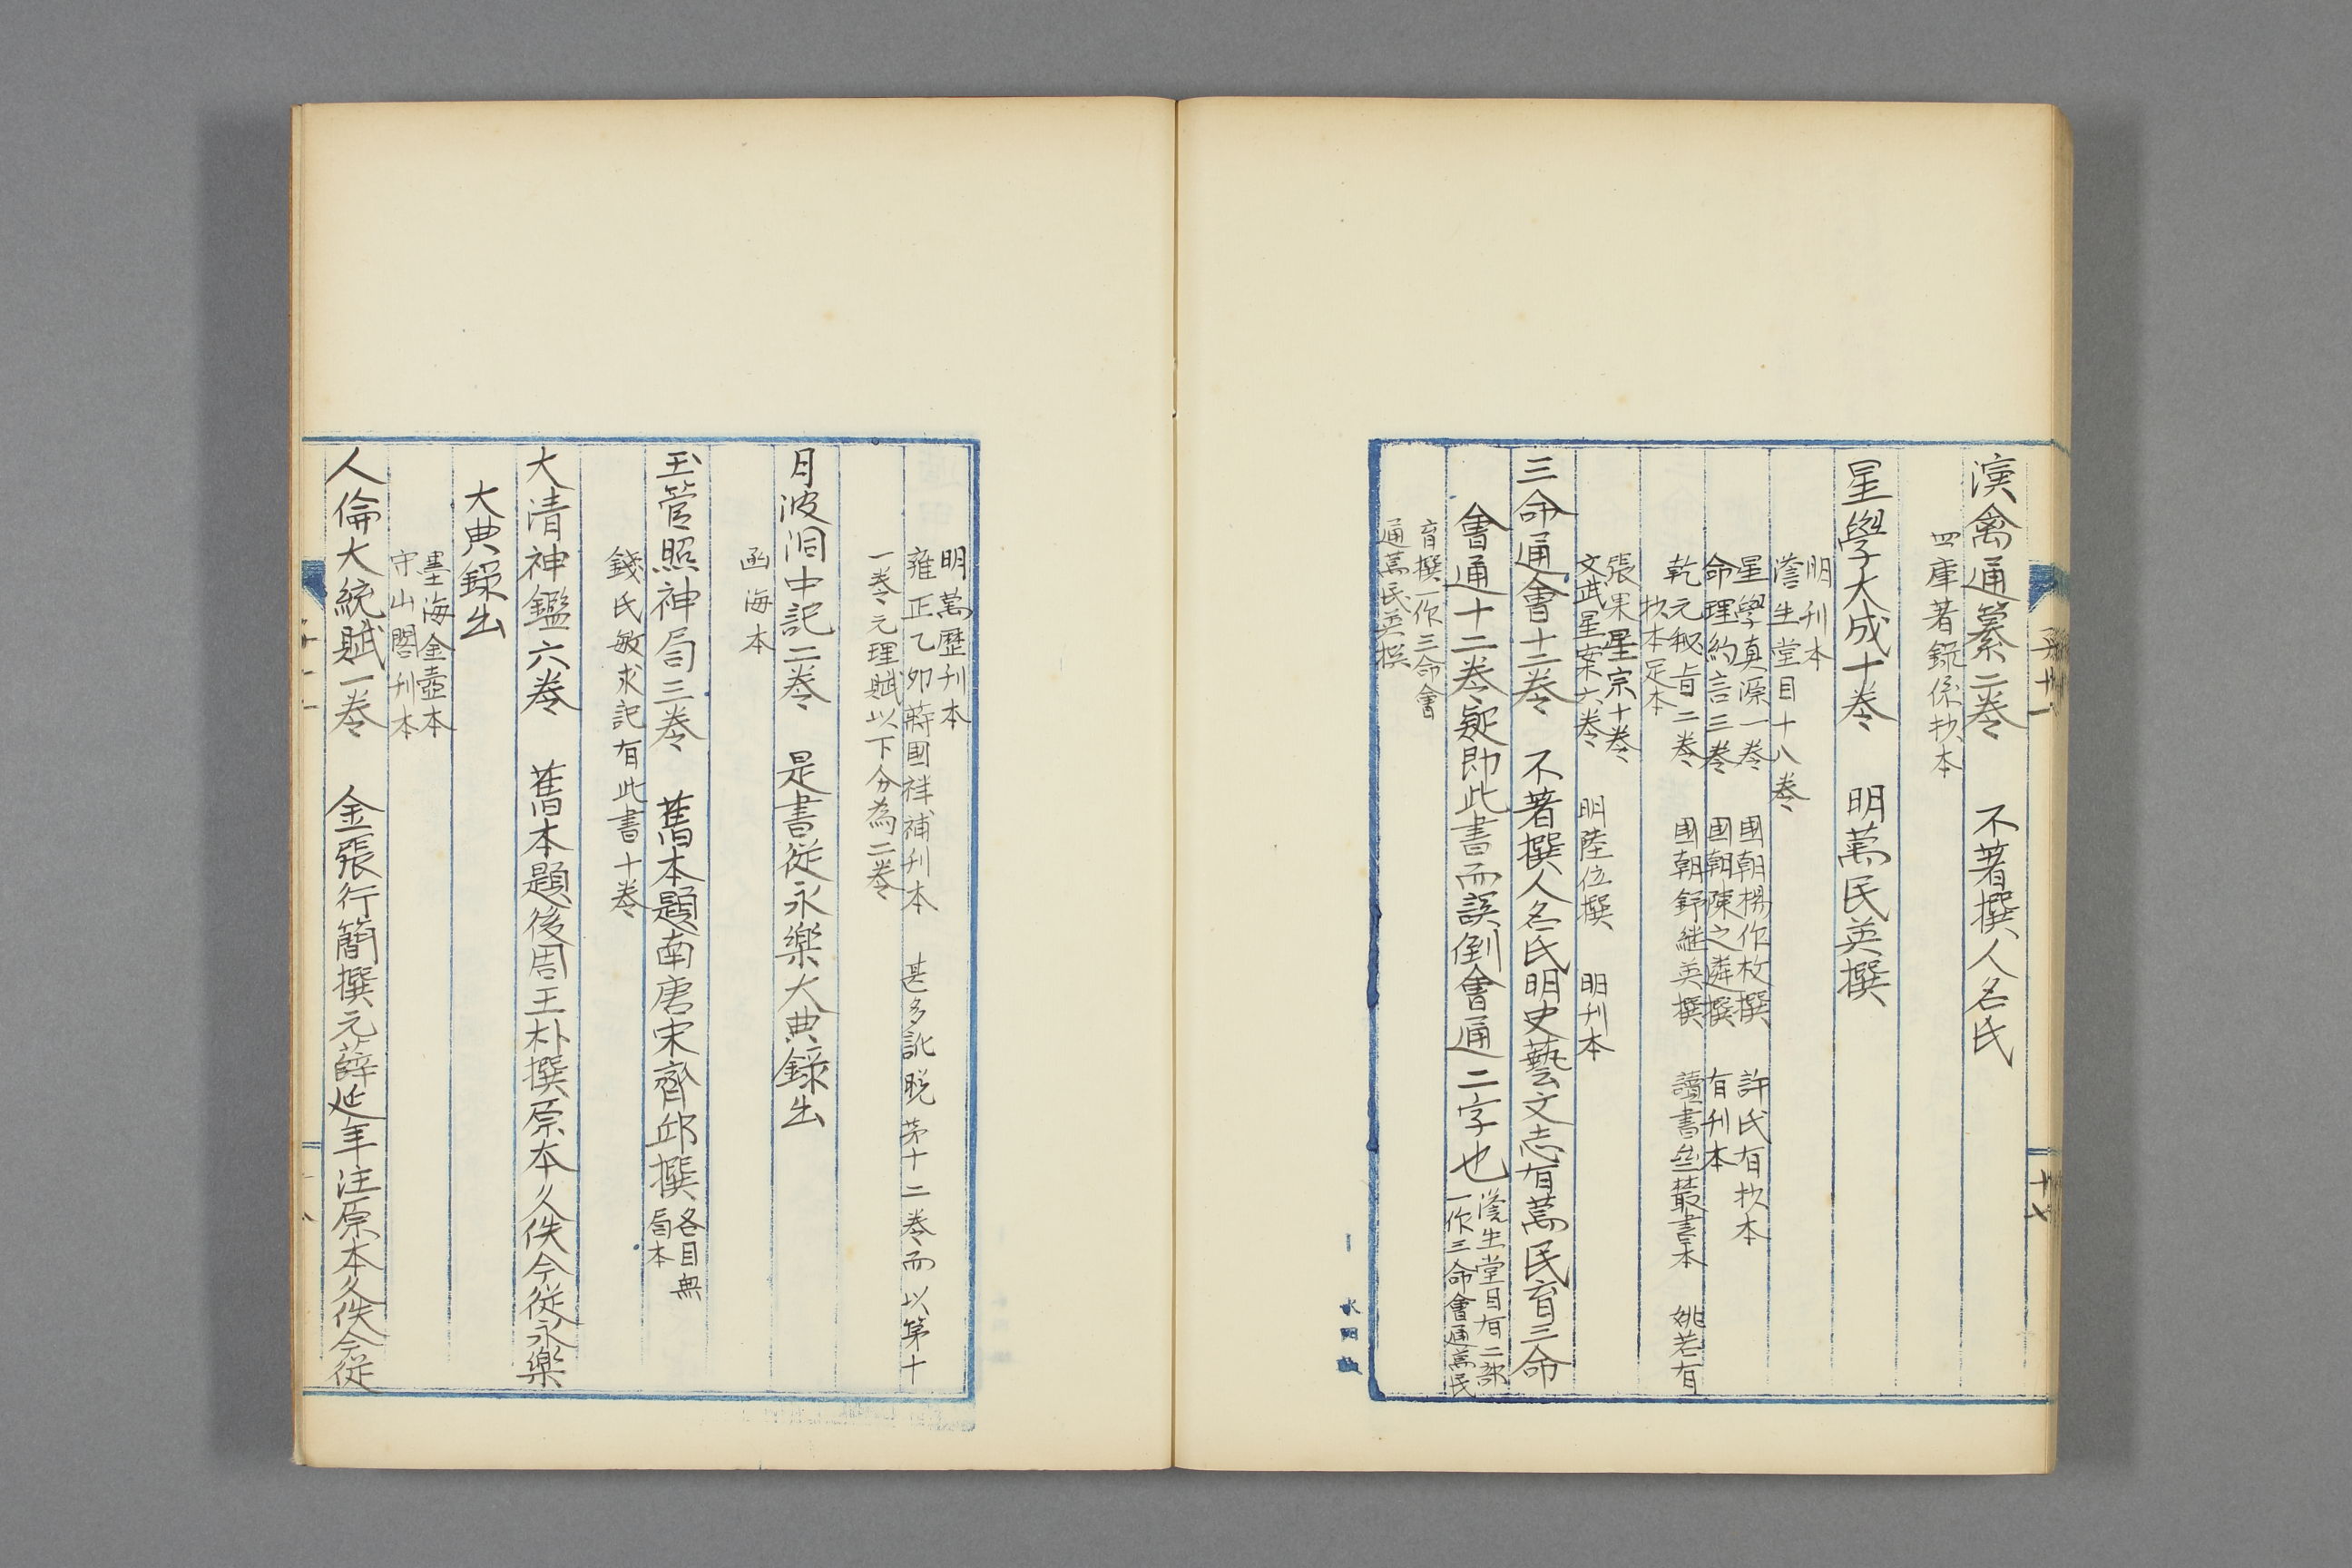 演禽通纂二卷　不著撰人名氏
四庫著錄係抄本
星學大成十卷　明萬民英撰
明刊本
澹生堂目十八卷
星學真源一卷　國朝楊作枚撰　許氏有抄本
命理約言三卷　國朝陳之遴撰　有刊本
乾元秘旨二卷　國朝舒繼英撰　讀書叢書本　姚若有
抄本足本
張果星宗十卷
文武星案六卷　明陸位撰　明刊本
三命通會十二卷　不著撰人名氏明史藝文志有萬民育三命
會通十二卷疑即此書而誤倒會通二字也
澹生堂目有二部
一作三命會通萬民
育撰一作三命會
通萬民英撰
明萬歷刊本
雍正乙卯蔣國祥補刊本　甚多訛脫第十二卷而以第十
一卷元理賦以下分為二卷
月波洞中記二卷　是書從永樂大典錄出
函海本
玉管照神局三卷　舊本題南唐宋齊邱撰
各目無
局本
錢氏敏求記有此書十卷
大清神鑑六卷　舊本題後周王朴撰原本久佚今從永樂
大典錄出
墨海金壺本
守山閣刊本
人倫大統賦一卷　金張行簡撰元薛延年注原本久佚今從
十七